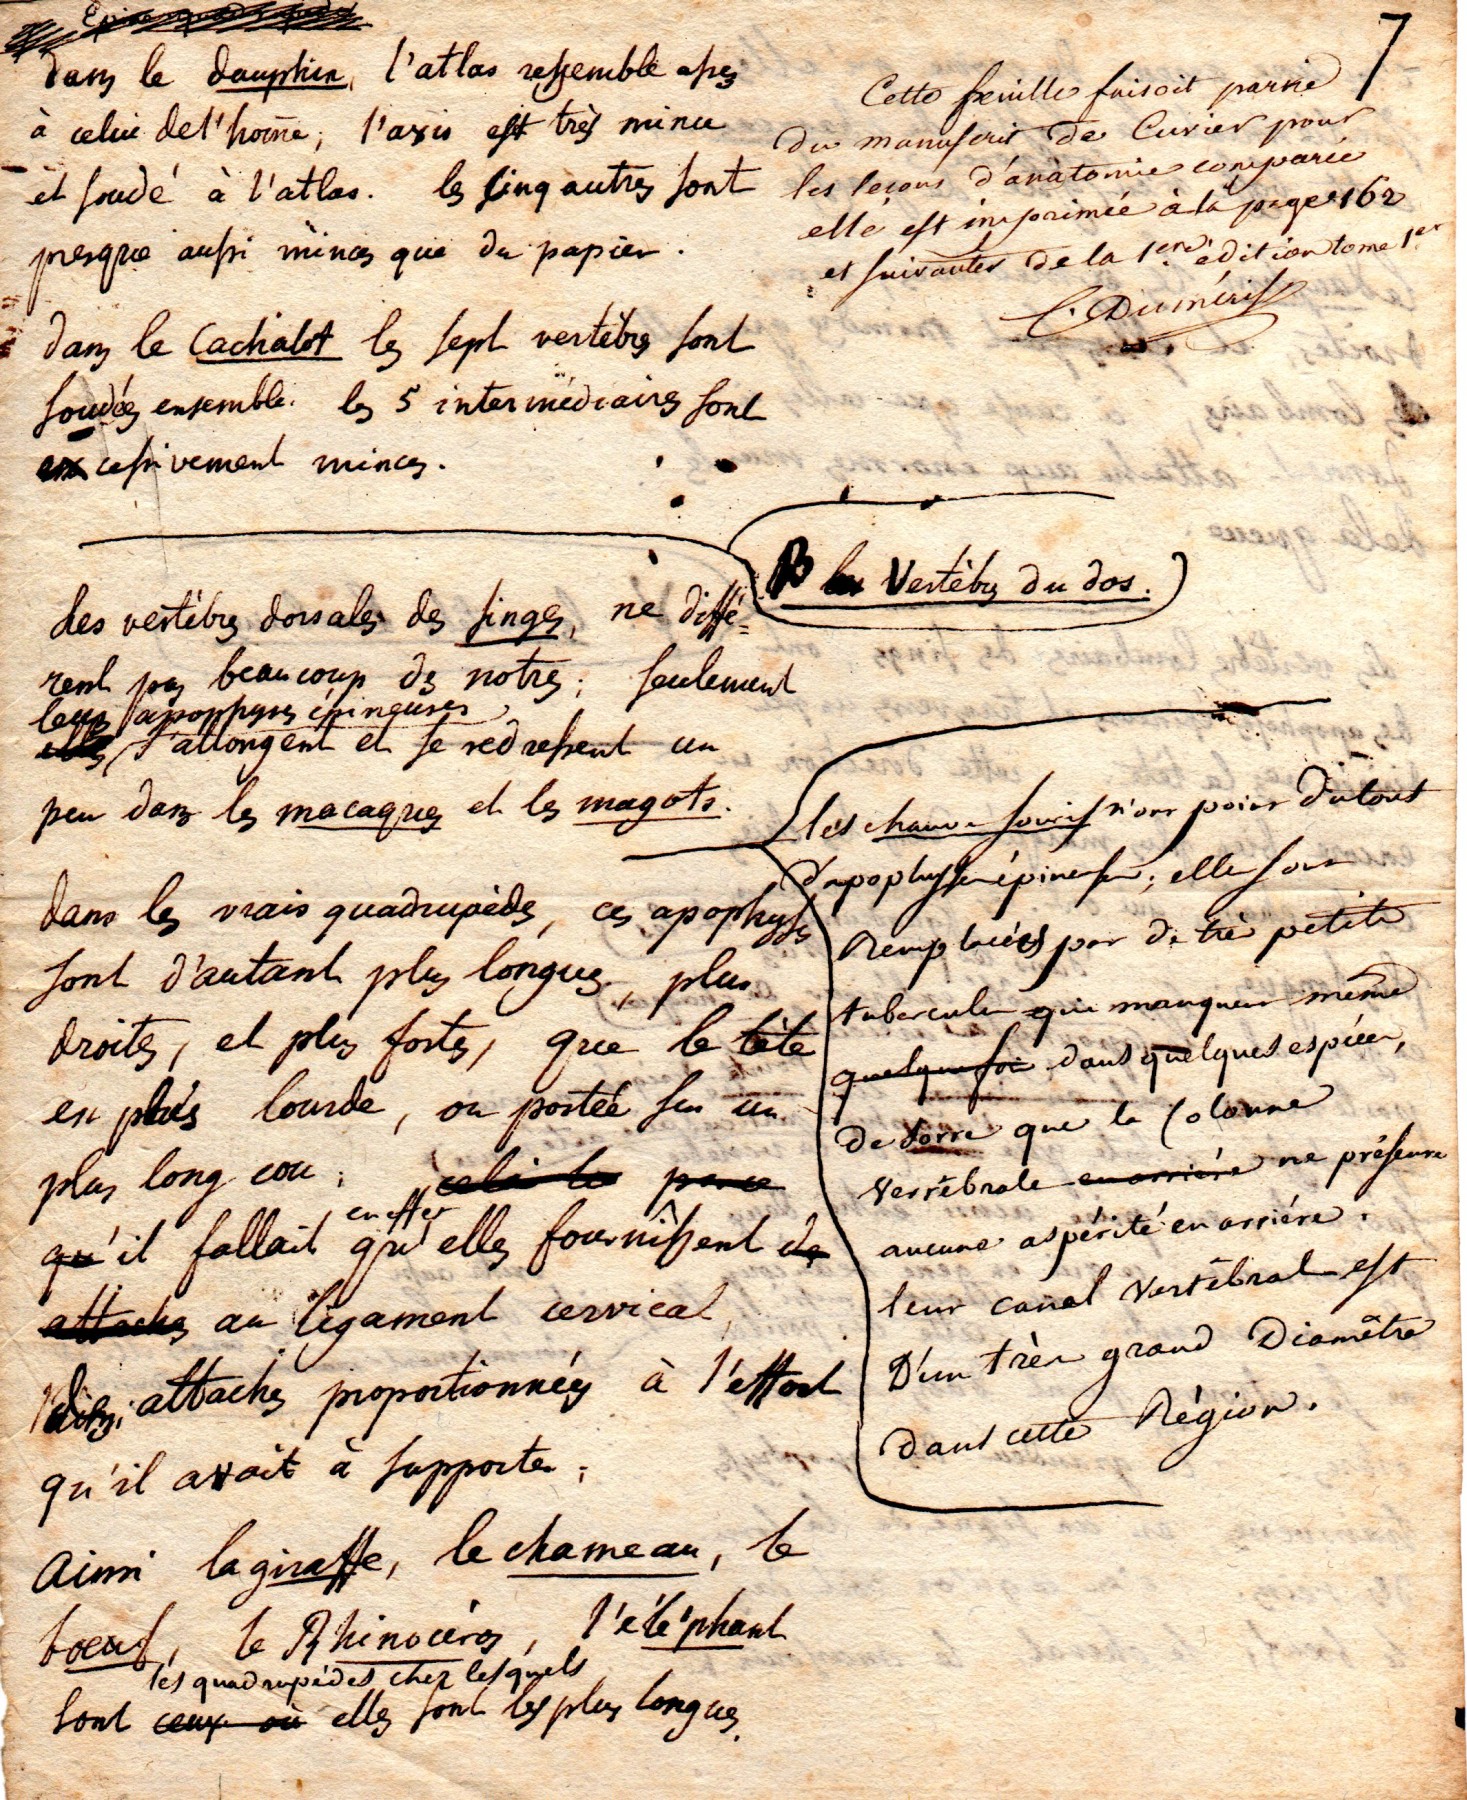 7
dans le dauphin, l'atlas ressemble assez
à celui de l'home, l'axis est très mince
et soudé à l'atlas. les cinq autres sont
presque aussi minces que du papier.
dans le Cachalot les sept vertèbres sont
soudées ensemble. les 5 intermédiaires sont
excessivement minces.
Cette feuille faisoit partie
du manuscrit de Cuvier pour
les leçons d'anatomie comparée
elle est imprimée à la page 162
et suivantes de la 1ere édition tome 1er
C. Duméril
B les Vertèbres du dos.
Les vertèbres dorsales des singes, ne diffé=
rent pas beaucoup des notres; seulement
leurs apophyses épineuses
elles s'allongent et se redressent un
peu dans les macaques et les magots.
dans les vrais quadrupèdes, ces apophyses
sont d'autant plus longues, plus
droites, et plus fortes, que la tête
est plus lourde, ou portée sur un
plus long cou; celà le parce
en effet
qu'il fallait qu'elles fournissent de
attaches au ligament cervical,
des attaches proportionnées à l'effort
qu'il avait à supporter;
Ainsi la giraffe, le chameau, le
bœuf, le Rhinocéros, l'éléphant
les quadrupèdes chez lesquels
sont ceux où elles sont les plus longues.
les chauve souris n'ont point du tout
d'apophyses épineuses; elles sont
remplacées par de très petits
tubercules qui manquent même
quelquefois dans quelques espèces,
de sorte que la Colonne
Vertèbrale en arrière ne présente
aucune aspérité en arrière.
leur canal Vertébral est
D'un très grand Diamètre
dans cette Région.